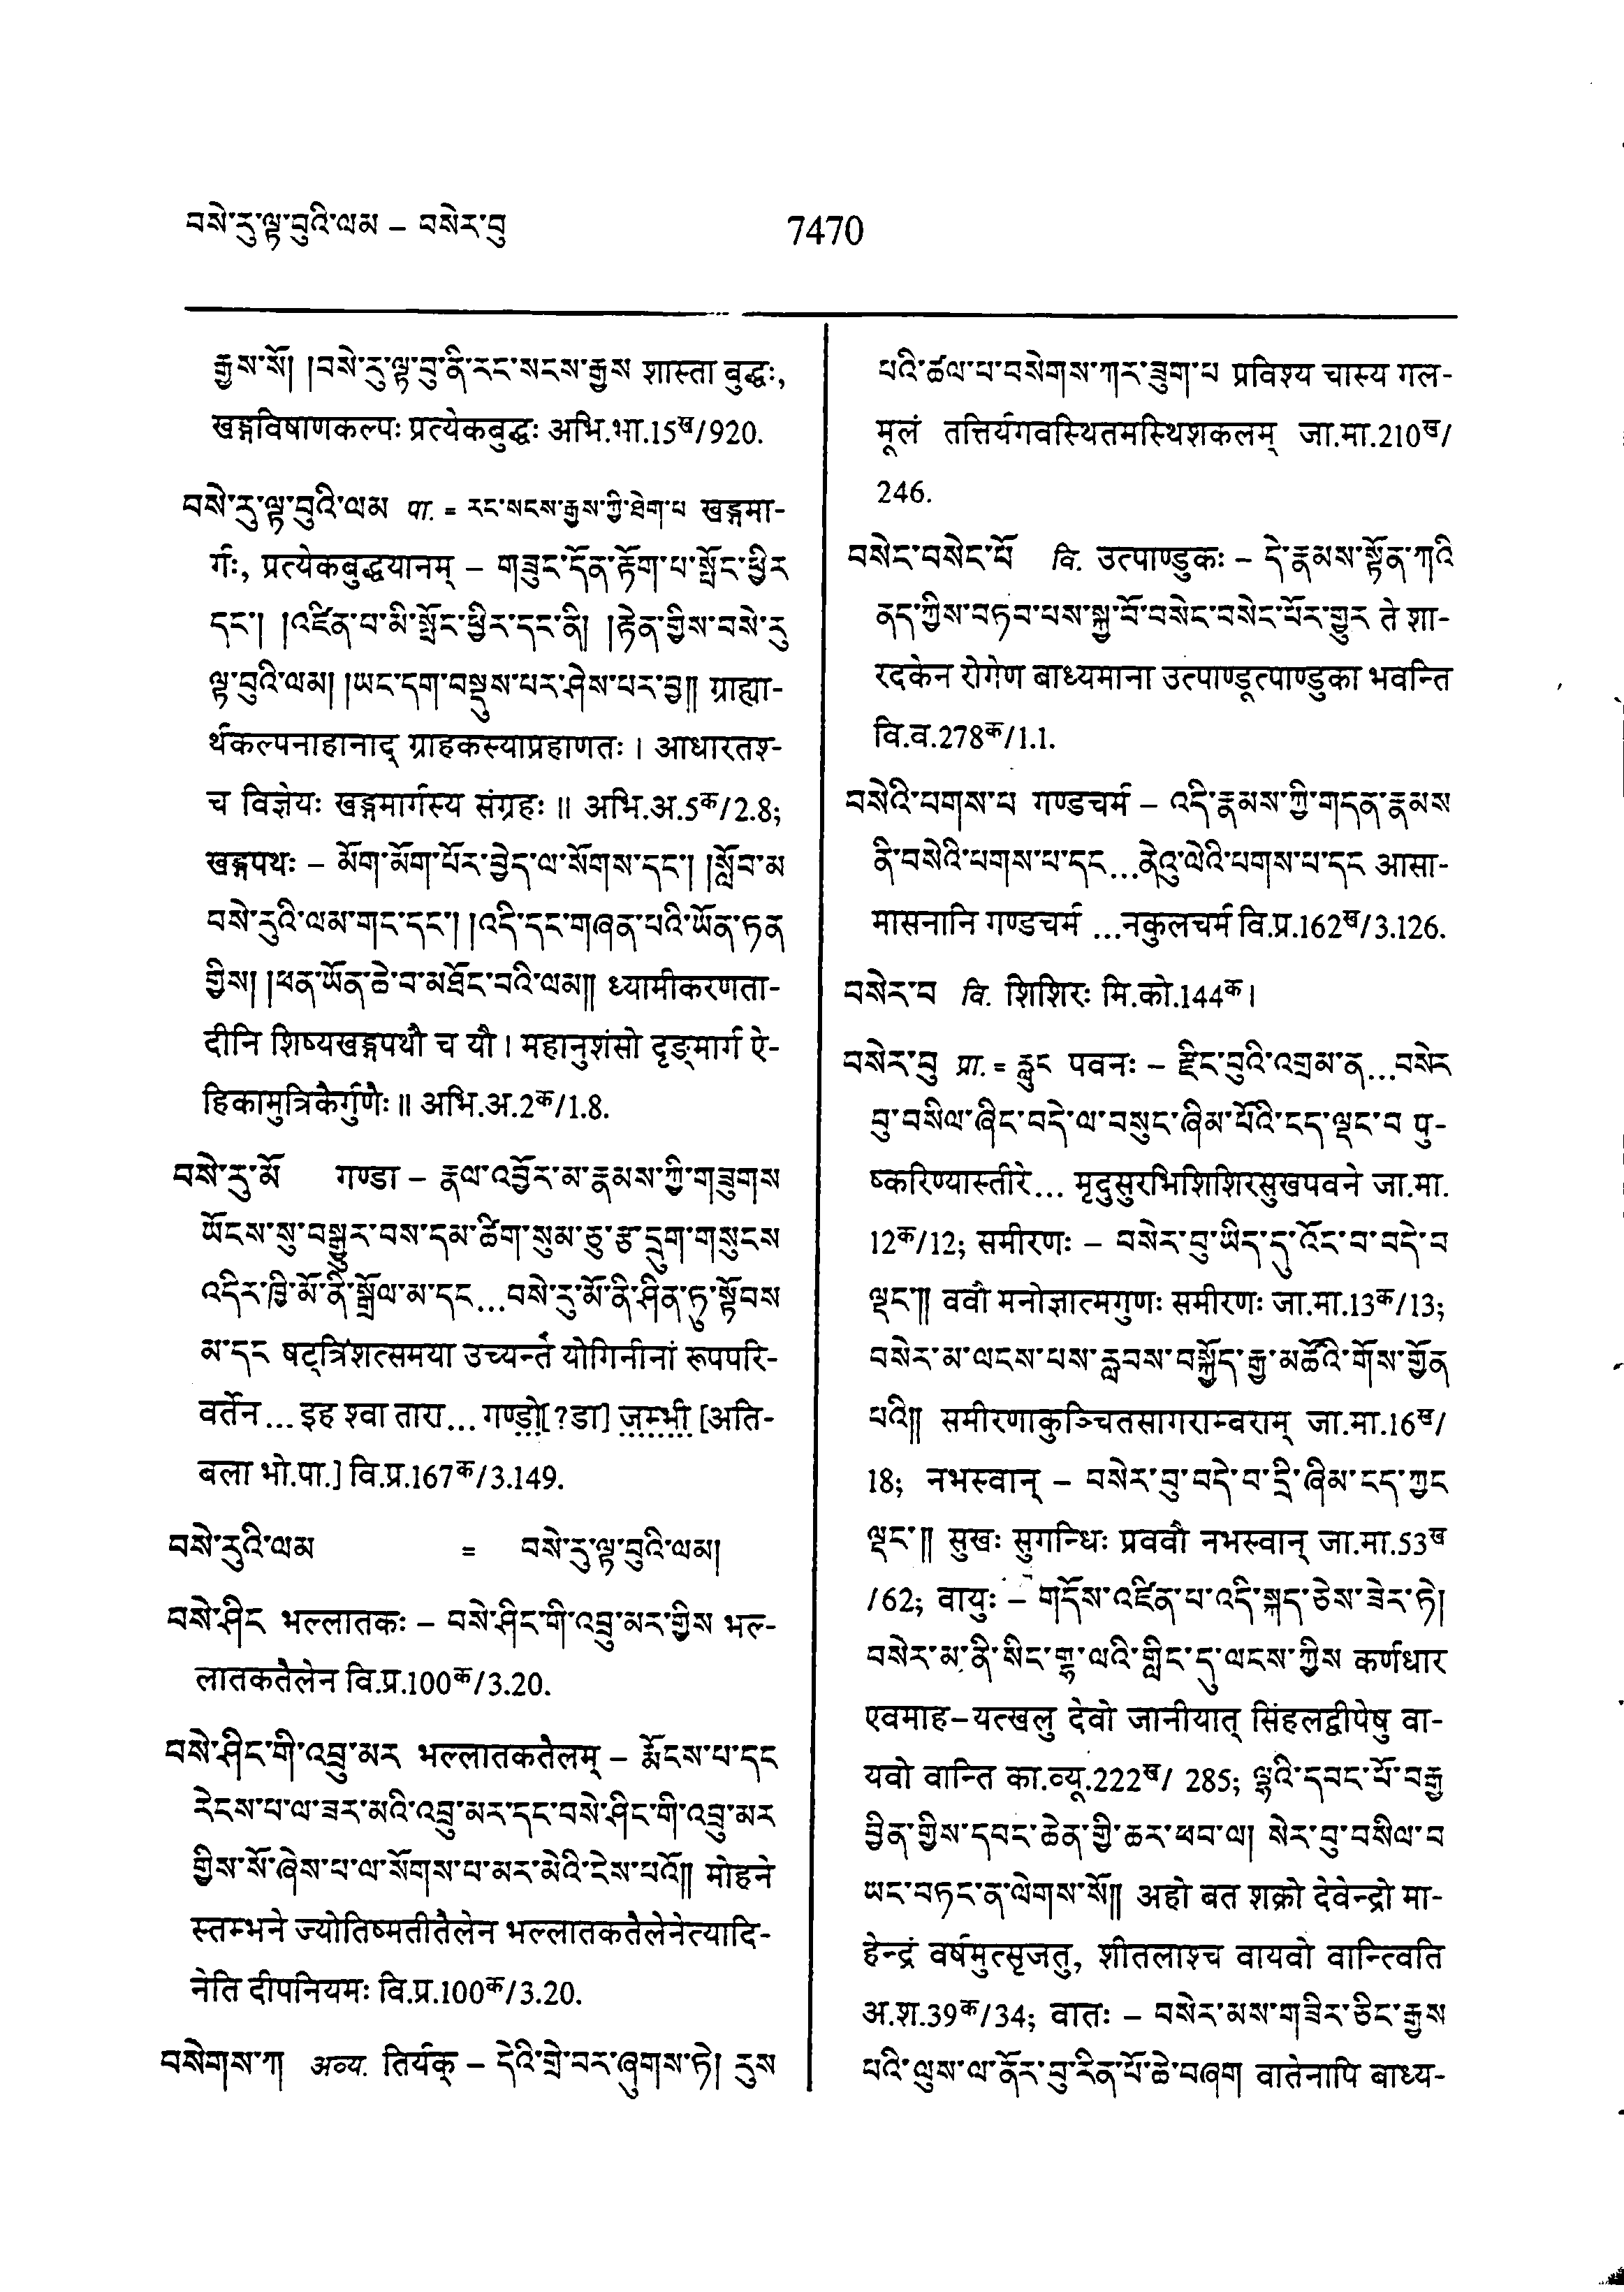 བསེ་རུ་ལྟ་བུའི་ལམ – བསེར་བུ
7470
རྒྱས་སོ། །བསེ་རུ་ལྟ་བུ་ནི་རང་སངས་རྒྱས शास्ता बुद्धः,
खड्गविषाणकल्पः प्रत्येकबुद्धः अभि.भा.15ख/920.
བསེ་རུ་ལྟ་བུའི་ལམ पा. = རང་སངས་རྒྱས་ཀྱི་ཐེག་པ खड्गमा-
र्गः, प्रत्येकबुद्धयानम् – གཟུང་དོན་རྟོག་པ་སྤོང་ཕྱིར
དང་། །འཛིན་པ་མི་སྤོང་ཕྱིར་དང་ནི། །རྟེན་གྱིས་བསེ་རུ
ལྟ་བུའི་ལམ། །ཡང་དག་བསྡུས་པར་ཤེས་པར་བྱ།། ग्राह्या-
र्थकल्पनाहानाद् ग्राहकस्याप्रहाणतः । आधारतश्-
च विज्ञेयः खड्गमार्गस्य संग्रहः ॥ अभि.अ.5क/2.8;
खड्गपथः – མོག་མོག་པོར་བྱེད་ལ་སོགས་དང་། །སློབ་མ
བསེ་རུའི་ལམ་གང་དང་། །འདི་དང་གཞན་པའི་ཡོན་ཏན
གྱིས། །ཕན་ཡོན་ཆེ་བ་མཐོང་བའི་ལམ།། ध्यामीकरणता-
दीनि शिष्यखड्गपथौ च यौ । महानुशंसो दृङ्मार्ग ऐ-
हिकामुत्रिकैर्गुणैः ॥ अभि.अ.2क/1.8.
བསེ་རུ་མོ गण्डा – རྣལ་འབྱོར་མ་རྣམས་ཀྱི་གཟུགས
ཡོངས་སུ་བསྒྱུར་བས་དམ་ཚིག་སུམ་ཅུ་རྩ་དྲུག་གསུངས
འདིར་ཁྱི་མོ་ནི་སྒྲོལ་མ་དང...བསེ་རུ་མོ་ནི་ཤིན་ཏུ་སྟོབས
མ་དང षट्त्रिंशत्समया उच्यन्ते योगिनीनां रूपपरि-
वर्तेन... इह श्वा तारा... गण्डो[?डा] जम्भी [अति-
बला भो.पा.] वि.प्र.167क/3.149.
བསེ་རུའི་ལམ = བསེ་རུ་ལྟ་བུའི་ལམ།
བསེ་ཤིང भल्लातकः – བསེ་ཤིང་གི་འབྲུ་མར་གྱིས भल्-
लातकतैलेन वि.प्र.100क/3.20.
བསེ་ཤིང་གི་འབྲུ་མར भल्लातकतैलम् – རྨོངས་པ་དང
རེངས་པ་ལ་ཟར་མའི་འབྲུ་མར་དང་བསེ་ཤིང་གི་འབྲུ་མར
གྱིས་སོ་ཞེས་པ་ལ་སོགས་པ་མར་མེའི་ངེས་པའོ།། मोहने
स्तम्भने ज्योतिष्मतीतैलेन भल्लातकतैलेनेत्यादि-
नेति दीपनियमः वि.प्र.100क/3.20.
བསེགས་ཀ अव्य. तिर्यक् – དེའི་གྲེ་བར་ཞུགས་ཏེ། རུས
པའི་ཚལ་པ་བསེགས་ཀར་ཟུག་པ प्रविश्य चास्य गल-
मूलं तत्तिर्यगवस्थितमस्थिशकलम् जा.मा.210ख/
246.
བསེང་བསེང་པོ वि. उत्पाण्डुकः – དེ་རྣམས་སྟོན་ཀའི
ནད་ཀྱིས་བཏབ་པས་སྐྱ་བོ་བསེང་བསེང་པོར་གྱུར ते शा-
रदकेन रोगेण बाध्यमाना उत्पाण्डूत्पाण्डुका भवन्ति
वि.व.278क/1.1.
བསེའི་པགས་པ गण्डचर्म – འདི་རྣམས་ཀྱི་གདན་རྣམས
ནི་བསེའི་པགས་པ་དང...ནེའུ་ལེའི་པགས་པ་དང आसा-
मासनानि गण्डचर्म ...नकुलचर्म वि.प्र.162ख/3.126.
བསེར་བ वि. शिशिरः मि.को.144क।
བསེར་བུ प्रा. = རླུང पवनः – རྫིང་བུའི་འགྲམ་ན...བསེར
བུ་བསིལ་ཞིང་བདེ་ལ་བསུང་ཞིམ་པོའི་ངད་ལྡང་བ पु-
ष्करिण्यास्तीरे... मृदुसुरभिशिशिरसुखपवने जा.मा.
12क/12; समीरणः – བསེར་བུ་ཡིད་དུ་འོང་བ་བདེ་བ
ལྡང་།། ववौ मनोज्ञात्मगुणः समीरणः जा.मा.13क/13;
བསེར་མ་ལངས་པས་རླབས་བསྐྱོད་རྒྱ་མཚོའི་གོས་གྱོན
པའི།། समीरणाकुञ्चितसागराम्बराम् जा.मा.16ख/
18; नभस्वान् – བསེར་བུ་བདེ་བ་དྲི་ཞིམ་ངད་ཀྱང
ལྡང་།། सुखः सुगन्धिः प्रववौ नभस्वान् जा.मा.53ख
/62; वायुः – གདོས་འཛིན་པ་འདི་སྐད་ཅེས་ཟེར་ཏེ།
བསེར་མ་ནི་སིང་གྷ་ལའི་གླིང་དུ་ལངས་ཀྱིས कर्णधार
एवमाह–यत्खलु देवो जानीयात् सिंहलद्वीपेषु वा-
यवो वान्ति का.व्यू.222ख/ 285; ལྷའི་དབང་པོ་བརྒྱ
བྱིན་གྱིས་དབང་ཆེན་གྱི་ཆར་ཕབ་ལ། སེར་བུ་བསིལ་བ
ཡང་བཏང་ན་ལེགས་སོ།། अहो बत शक्रो देवेन्द्रो मा-
हेन्द्रं वर्षमुत्सृजतु, शीतलाश्च वायवो वान्त्विति
अ.श.39क/34; वातः – བསེར་མས་གཟིར་ཅིང་རྒྱས
པའི་ལུས་ལ་ནོར་བུ་རིན་པོ་ཆེ་བཞག वातेनापि बाध्य-